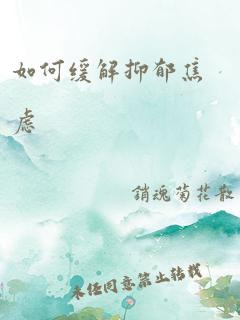 如何缓解抑郁焦
虑
銷魂菊花散
未经同意禁止转载